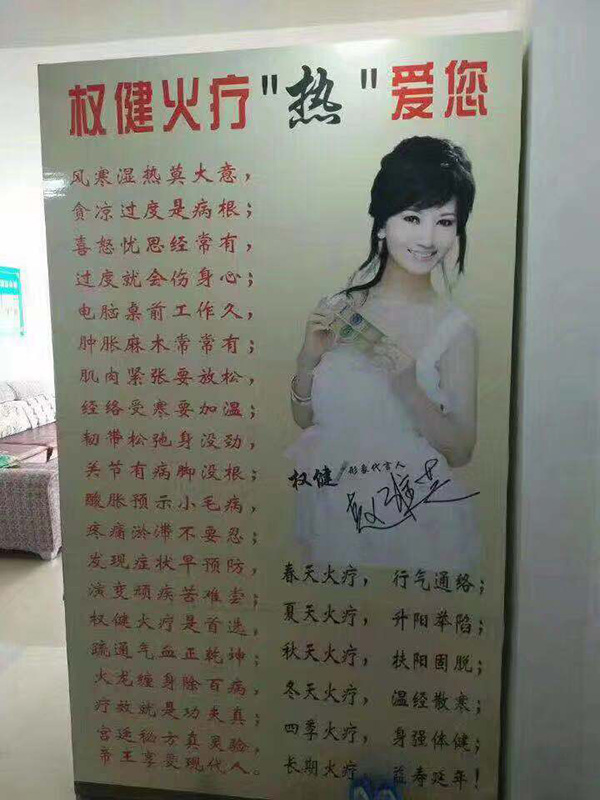 权健火疗"热"爱您
风寒湿热莫大意，
贪凉过度是病根；
喜怒忧思经常有，
过度就会伤身心；
电脑桌前工作久，
肿胀麻木常常有；
肌肉紧张要放松，
经络受寒要加温；
韧带松弛身没劲，
关节有病脚没根；
酸胀预示小毛病，
疼痛淤滞不要忍；
发现症状早预防，
演变顽疾苦难尝；
权健火疗是首选，
疏通气血正乾坤；
火龙缠身除百病，
疗效就是功夫真；
宫廷秘方真灵验，
帝王享受现代人。
权健 形象代言人
赵雅芝
春天火疗，行气通络；
夏天火疗，升阳举陷；
秋天火疗，扶阳固脱；
冬天火疗，温经散寒；
四季火疗，身强体健；
长期火疗 益寿延年！